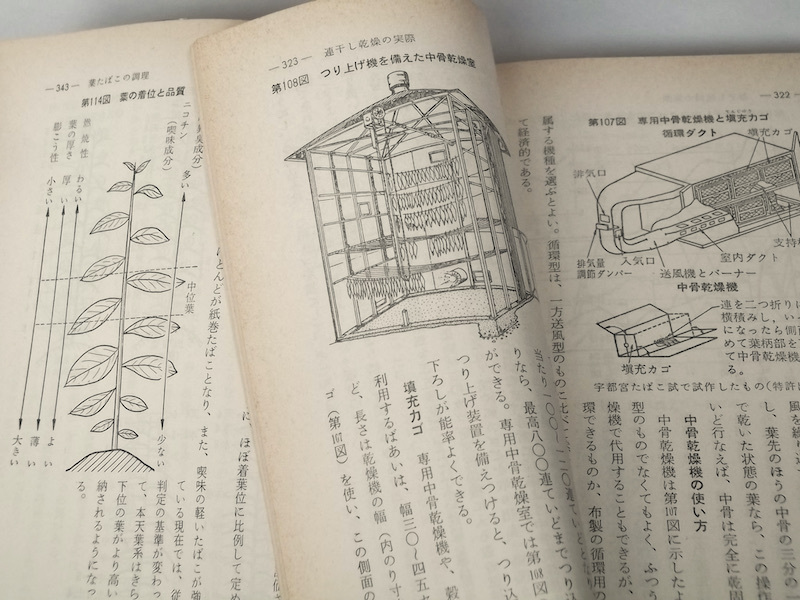 —343— 葉たばこの調理
第114図 葉の着位と品質
ニコチン
(喫味成分)
多い
少ない
中位葉
燃焼性
わるい
よい
葉の厚さ
厚い
薄い
膨こう性
小さい
大きい
ほぼ着葉位に比例して定め
ほとんどが紙巻たばことなり、また、喫味の軽いたばこが強
ている現在では、従
判定の基準が変わっ
て、本天葉系はきら
下位の葉がより高い
納されるようになっ
る。
—323— 連干し乾燥の実際
第108図 つり上げ機を備えた中骨乾燥室
属する機種を選ぶとよい。循環型は、一方送風型のものに比べ
て経済的である。
りなら、最高八〇〇連ていどまでつり込
ができる。専用中骨乾燥室では第108図
つり上げ装置を備えつけると、つり込
下ろしが能率よくできる。
填充カゴ 専用中骨乾燥機や、穀
利用するばあいは、幅三〇～四五セ
ど、長さは乾燥機の幅(内のり寸
ゴ(第107図)を使い、この側面の
322—
第107図 専用中骨乾燥機と填充カゴ
循環ダクト
填充カゴ
排気口
支持
室内ダクト
入気口
送風機とバーナー
排気量
調節ダンパー
中骨乾燥機
連を二つ折りに
横積みし、いっ
になったら側面
めて葉柄部を下
て中骨乾燥機
る。
填充カゴ
宇都宮たばこ試で試作したもの(特許出
し、葉先のほうの中骨の三分の一
で乾いた状態の葉なら、この操作
いど行なえば、中骨は完全に乾固
中骨乾燥機の使い方
中骨乾燥機は第107図に示したよ
型のものでなくてもよく、ふつう
燥機で代用することもできるが、
環できるものか、布製の循環用の